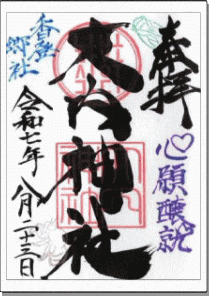 奉拝
心願醸就
大内神社
香登
郷社
令和七年 八月二十三日